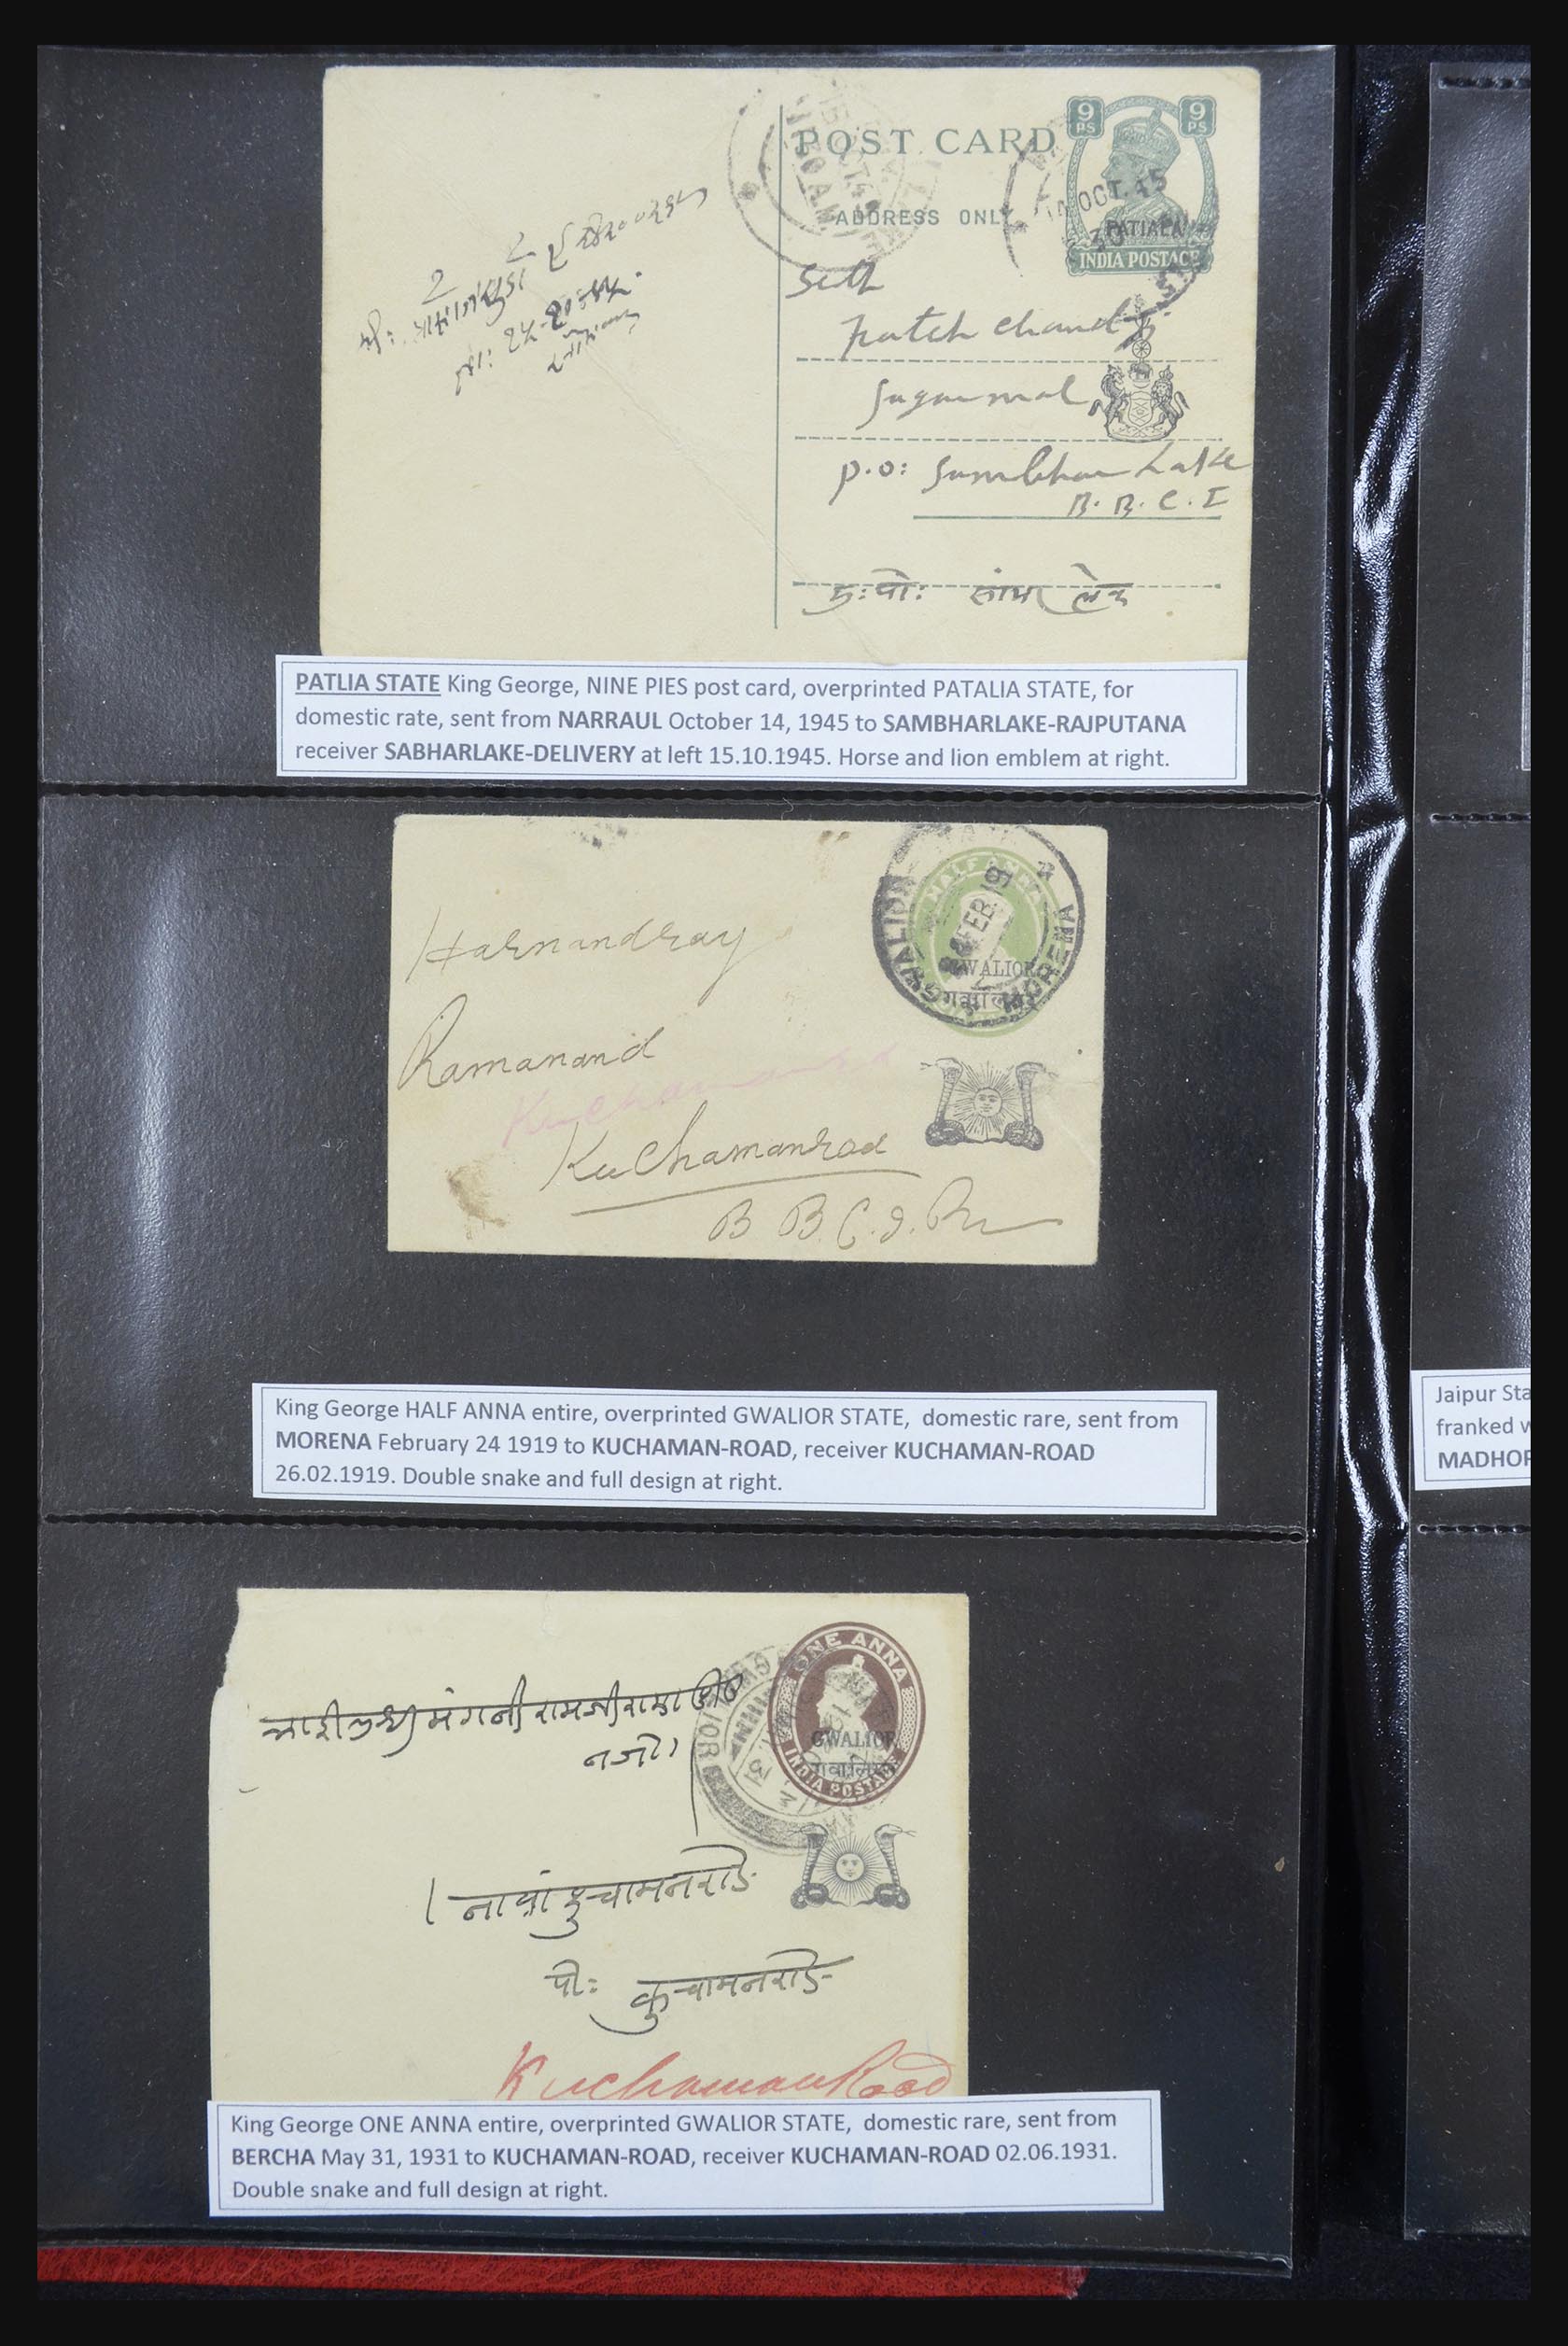 POST CARD
9 PS
9 PS
ADDRESS ONLY
14 OCT. 45
PATIALA
INDIA POSTAGE
Seth
Fateh chand ji
Suganmal
P.O: Sambhar Lake
B. B. C. I
पो: सांभर लेक
PATLIA STATE King George, NINE PIES post card, overprinted PATALIA STATE, for
domestic rate, sent from NARRAUL October 14, 1945 to SAMBHARLAKE-RAJPUTANA
receiver SABHARLAKE-DELIVERY at left 15.10.1945. Horse and lion emblem at right.
HALF ANNA
24 FEB. 19
GWALIOR MORENA
GWALIOR
गवालियर
Harnandray
Ramanand
Kuchaman
Kuchamanroad
B B. C. I. Ry
King George HALF ANNA entire, overprinted GWALIOR STATE, domestic rare, sent from
MORENA February 24 1919 to KUCHAMAN-ROAD, receiver KUCHAMAN-ROAD
26.02.1919. Double snake and full design at right.
ONE ANNA
GWALIOR
गवालियर
INDIA POSTAGE
कुचामनरोड
पो: कुचामनरोड
Kuchaman Road
King George ONE ANNA entire, overprinted GWALIOR STATE, domestic rare, sent from
BERCHA May 31, 1931 to KUCHAMAN-ROAD, receiver KUCHAMAN-ROAD 02.06.1931.
Double snake and full design at right.
Jaipur Sta
franked w
MADHOP